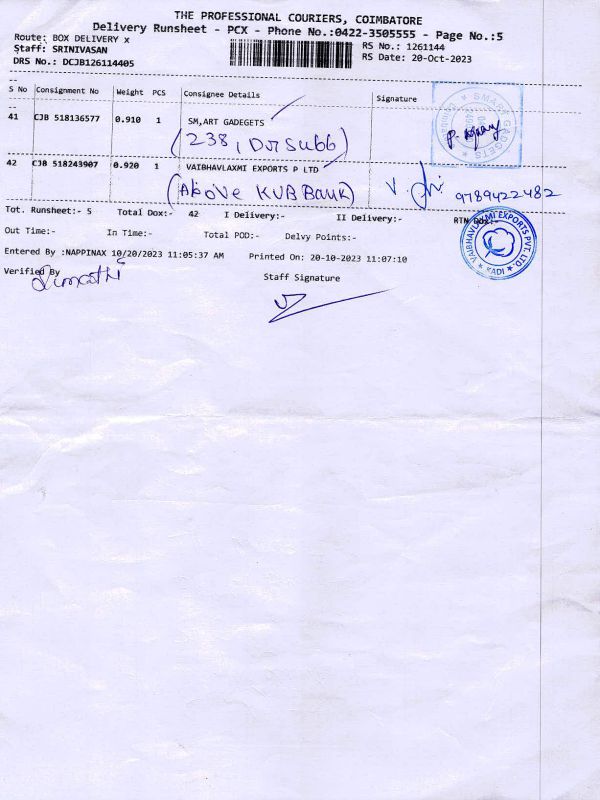 THE PROFESSIONAL COURIERS, COIMBATORE
Delivery Runsheet - PCX - Phone No.:0422-3505555 - Page No.:5
Route: BOX DELIVERY x RS No.: 1261144
Staff: SRINIVASAN RS Date: 20-Oct-2023
DRS No.: DCJB126114405
S No Consignment No Weight PCS Consignee Details Signature
41 CJB 518136577 0.910 1 SM,ART GADEGETS
(238, DrSubb)
SMART GADGETS
42 CJB 518243907 0.920 1 VAIBHAVLAXMI EXPORTS P LTD
(Above KVB Bank) 9789422482
Tot. Runsheet:- 5 Total Dox:- 42 I Delivery:- II Delivery:- RTN Dox:-
Out Time:- In Time:- Total POD:- Delvy Points:-
VAIBHAVLAXMI EXPORTS PVT. LTD. ★ KADI ★
Entered By :NAPPINAX 10/20/2023 11:05:37 AM Printed On: 20-10-2023 11:07:10
Verified By Staff Signature